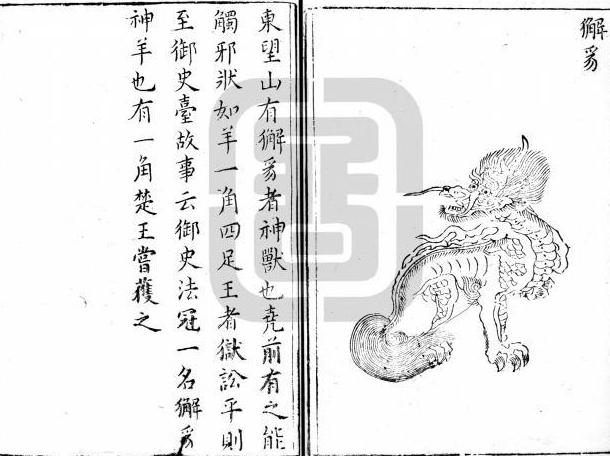 獬豸
東望山有獬豸者神獸也堯前有之能
觸邪狀如羊一角四足王者獄訟平則
至御史臺故事云御史法冠一名獬豸
神羊也有一角楚王嘗獲之